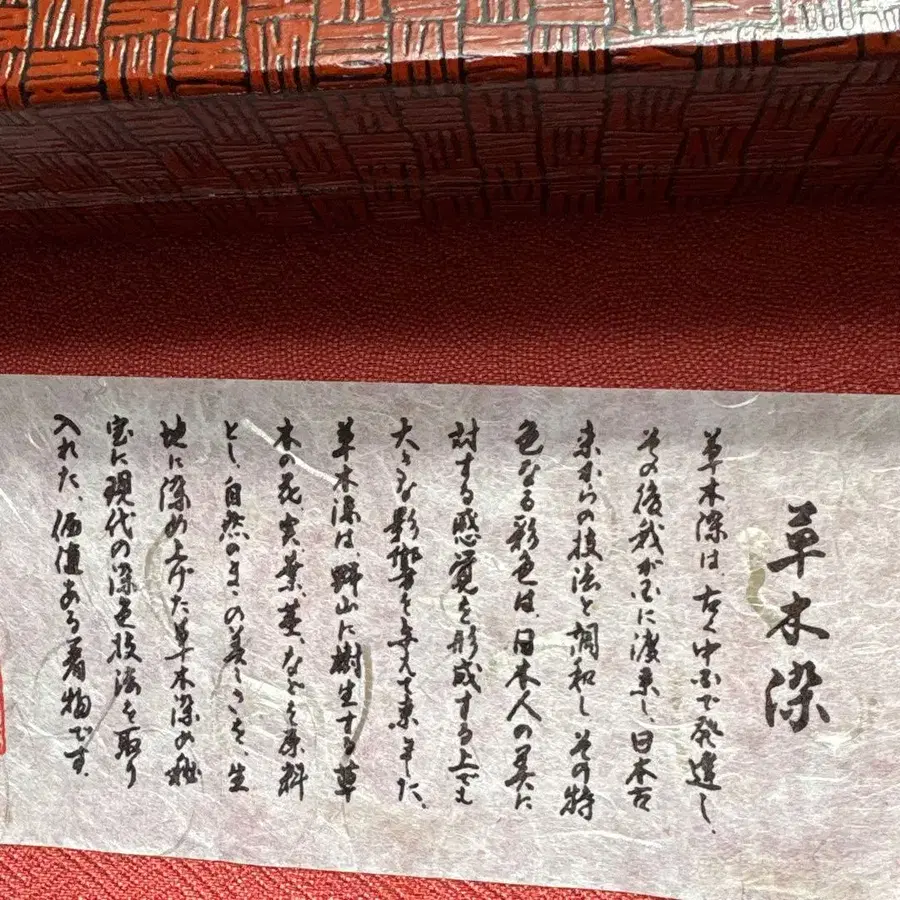 草木染
草木染は、古く中国で発達し、
その後我が国に渡来し、日本古
来からの技法と調和し、その特
色なる彩色は、日本人の美に
対する感覚を形成する上でも
大きな影響を与えて来ました。
草木染は、野山に樹生する草
木の花、実、葉、茎、などを原料
とし、自然のまゝの美しさを、生
地に染め上げた草木染の秘
宝に現代の染色技法を取り
入れた、価値ある着物です。